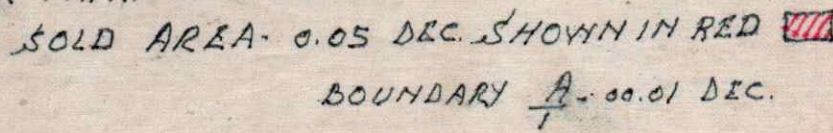 SOLD AREA- 0.05 DEC. SHOWN IN RED
BOUNDARY A/1 - 00.01 DEC.